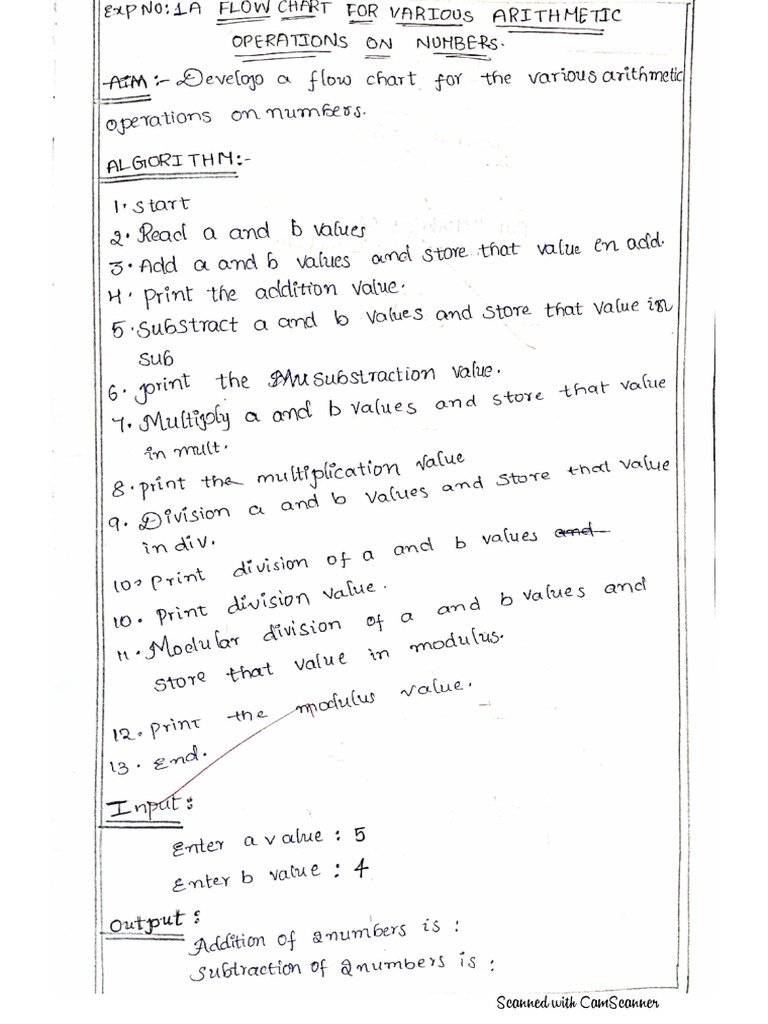 Exp No: 1A FLOW CHART FOR VARIOUS ARITHMETIC
OPERATIONS ON NUMBERS.
AIM:- Develop a flow chart for the various arithmetic
operations on numbers.
ALGORITHM:-
1. start
2. Read a and b values
3. Add a and b values and store that value in add.
4. print the addition value.
5. Substract a and b values and store that value in
sub
6. print the Mu substraction value.
7. Multiply a and b values and store that value
in mult.
8. print the multiplication value
9. Division a and b values and store that value
in div.
10. Print division of a and b values and
10. Print division value.
11. Modular division of a and b values and
store that value in modulus.
12. Print the modulus value.
13. End.
Input:
Enter a value : 5
Enter b value : 4
Output:
Addition of 2numbers is :
Subtraction of 2numbers is :
Scanned with CamScanner